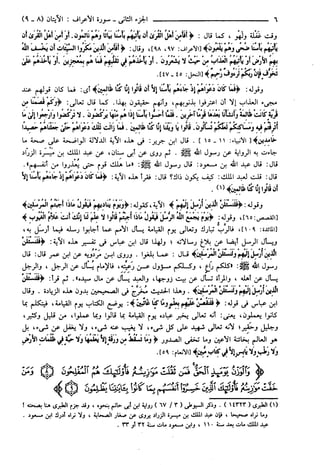 ٦ الجزء الثاني ـ سورة الأعراف : الآيتان (٨ ـ ٩)
وقت غفلة ولهو ، كما قال : ﴿ أفأمن أهل القرى أن يأتيهم بأسنا بياتا وهم نائمون أو أمن أهل القرى أن
بهم الأرض أو يأتيهم العذاب من حيث لا يشعرون . أو يأخذهم في تقلبهم فما هم بمعجزين . أو يأخذهم على
تخوف فإن ربكم لرءوف رحيم ﴾ [النحل : ٤٥ ـ ٤٧].
وقوله : ﴿ فما كان دعواهم إذ جاءهم بأسنا إلا أن قالوا إنا كنا ظالمين ﴾ أي : فما كان قولهم عند
مجيء العذاب إلا أن اعترفوا بذنوبهم ، وأنهم حقيقون بهذا. كما قال تعالى : ﴿ وكم قصمنا من
قرية كانت ظالمة وأنشأنا بعدها قوما آخرين . فلما أحسوا بأسنا إذا هم منها يركضون . لا تركضوا وارجعوا إلى ما
أترفتم فيه ومساكنكم لعلكم تسألون . قالوا يا ويلنا إنا كنا ظالمين . فما زالت تلك دعواهم حتى جعلناهم حصيدا
خامدين ﴾ [الأنبياء : ١١ ـ ١٥] . قال ابن جرير : في هذه الآية الدلالة الواضحة على صحة ما
جاءت به الرواية عن رسول الله ﷺ
قال : قال عبد الله بن مسعود : قال رسول الله ﷺ : «ما هلك قوم حتى يعذروا من أنفسهم».
قال : قلت لعبد الملك : كيف يكون ذاك ؟ قال : فقرأ هذه الآية : ﴿ فما كان دعواهم إذ جاءهم بأسنا إلا
أن قالوا إنا كنا ظالمين ﴾ (١) .
وقوله : ﴿ فلنسألن الذين أرسل إليهم ﴾ الآية ، كقوله : ﴿ ويوم يناديهم فيقول ماذا أجبتم المرسلين ﴾
[القصص : ٦٥]، وقوله : ﴿ يوم يجمع الله الرسل فيقول ماذا أجبتم قالوا لا علم لنا إنك أنت علام الغيوب ﴾
[المائدة : ١٠٩]، فالرب تبارك وتعالى يوم القيامة يسأل الأمم عما أجابوا رسله فيما أرسلهم به،
ويسأل الرسل أيضا عن بلاغ رسالاته ؛ ولهذا قال ابن عباس في تفسير هذه الآية : ﴿ فلنسألن
الذين أرسل إليهم ولنسألن المرسلين ﴾ قال : عما بلغوا . وروى ابن مردويه عن ابن عمر قال : قال
رسول الله ﷺ : «كلكم راع ، وكلكم مسؤول عن رعيته، فالإمام يسأل عن الرجل ، والرجل
يسأل عن أهله ، والمرأة تسأل عن بيت زوجها، والعبد يسأل عن مال سيده» . ثم قرأ : ﴿ فلنسألن
الذين أرسل إليهم ولنسألن المرسلين ﴾. وهذا الحديث مخرج في الصحيحين بدون هذه الزيادة . وقال
ابن عباس في قوله : ﴿ فلنقصن عليهم بعلم وما كنا غائبين ﴾ : يوضع الكتاب يوم القيامة، فيتكلم بما
كانوا يعملون، يعني : أنه تعالى يخبر عباده يوم القيامة بما قالوا وبما عملوا، من قليل وكثير،
وجليل وحقير؛ لأنه تعالى شهيد على كل شيء، لا يغيب عنه شيء، ولا يغفل عن شيء، بل
هو العالم بخائنة الأعين وما تخفي الصدور ﴿ وما تسقط من ورقة إلا يعلمها ولا حبة في ظلمات الأرض
ولا رطب ولا يابس إلا في كتاب مبين ﴾ [الأنعام : ٥٩].
﴿ والوزن يومئذ الحق فمن ثقلت موازينه فأولئك هم المفلحون ٨ ومن
خفت موازينه فأولئك الذين خسروا أنفسهم بما كانوا بآياتنا يظلمون ٩ ﴾
(١) الطبري (١٤٣٢٣)
وما نراه صحيحا ، فإن عبد الملك بن ميسرة الزراد يروي عن صغار الصحابة ، ولا نراه أدرك ابن مسعود .
عبد الملك مات بعد سنة ١١٠ ، وابن مسعود مات سنة ٣٢ أو ٣٣ .